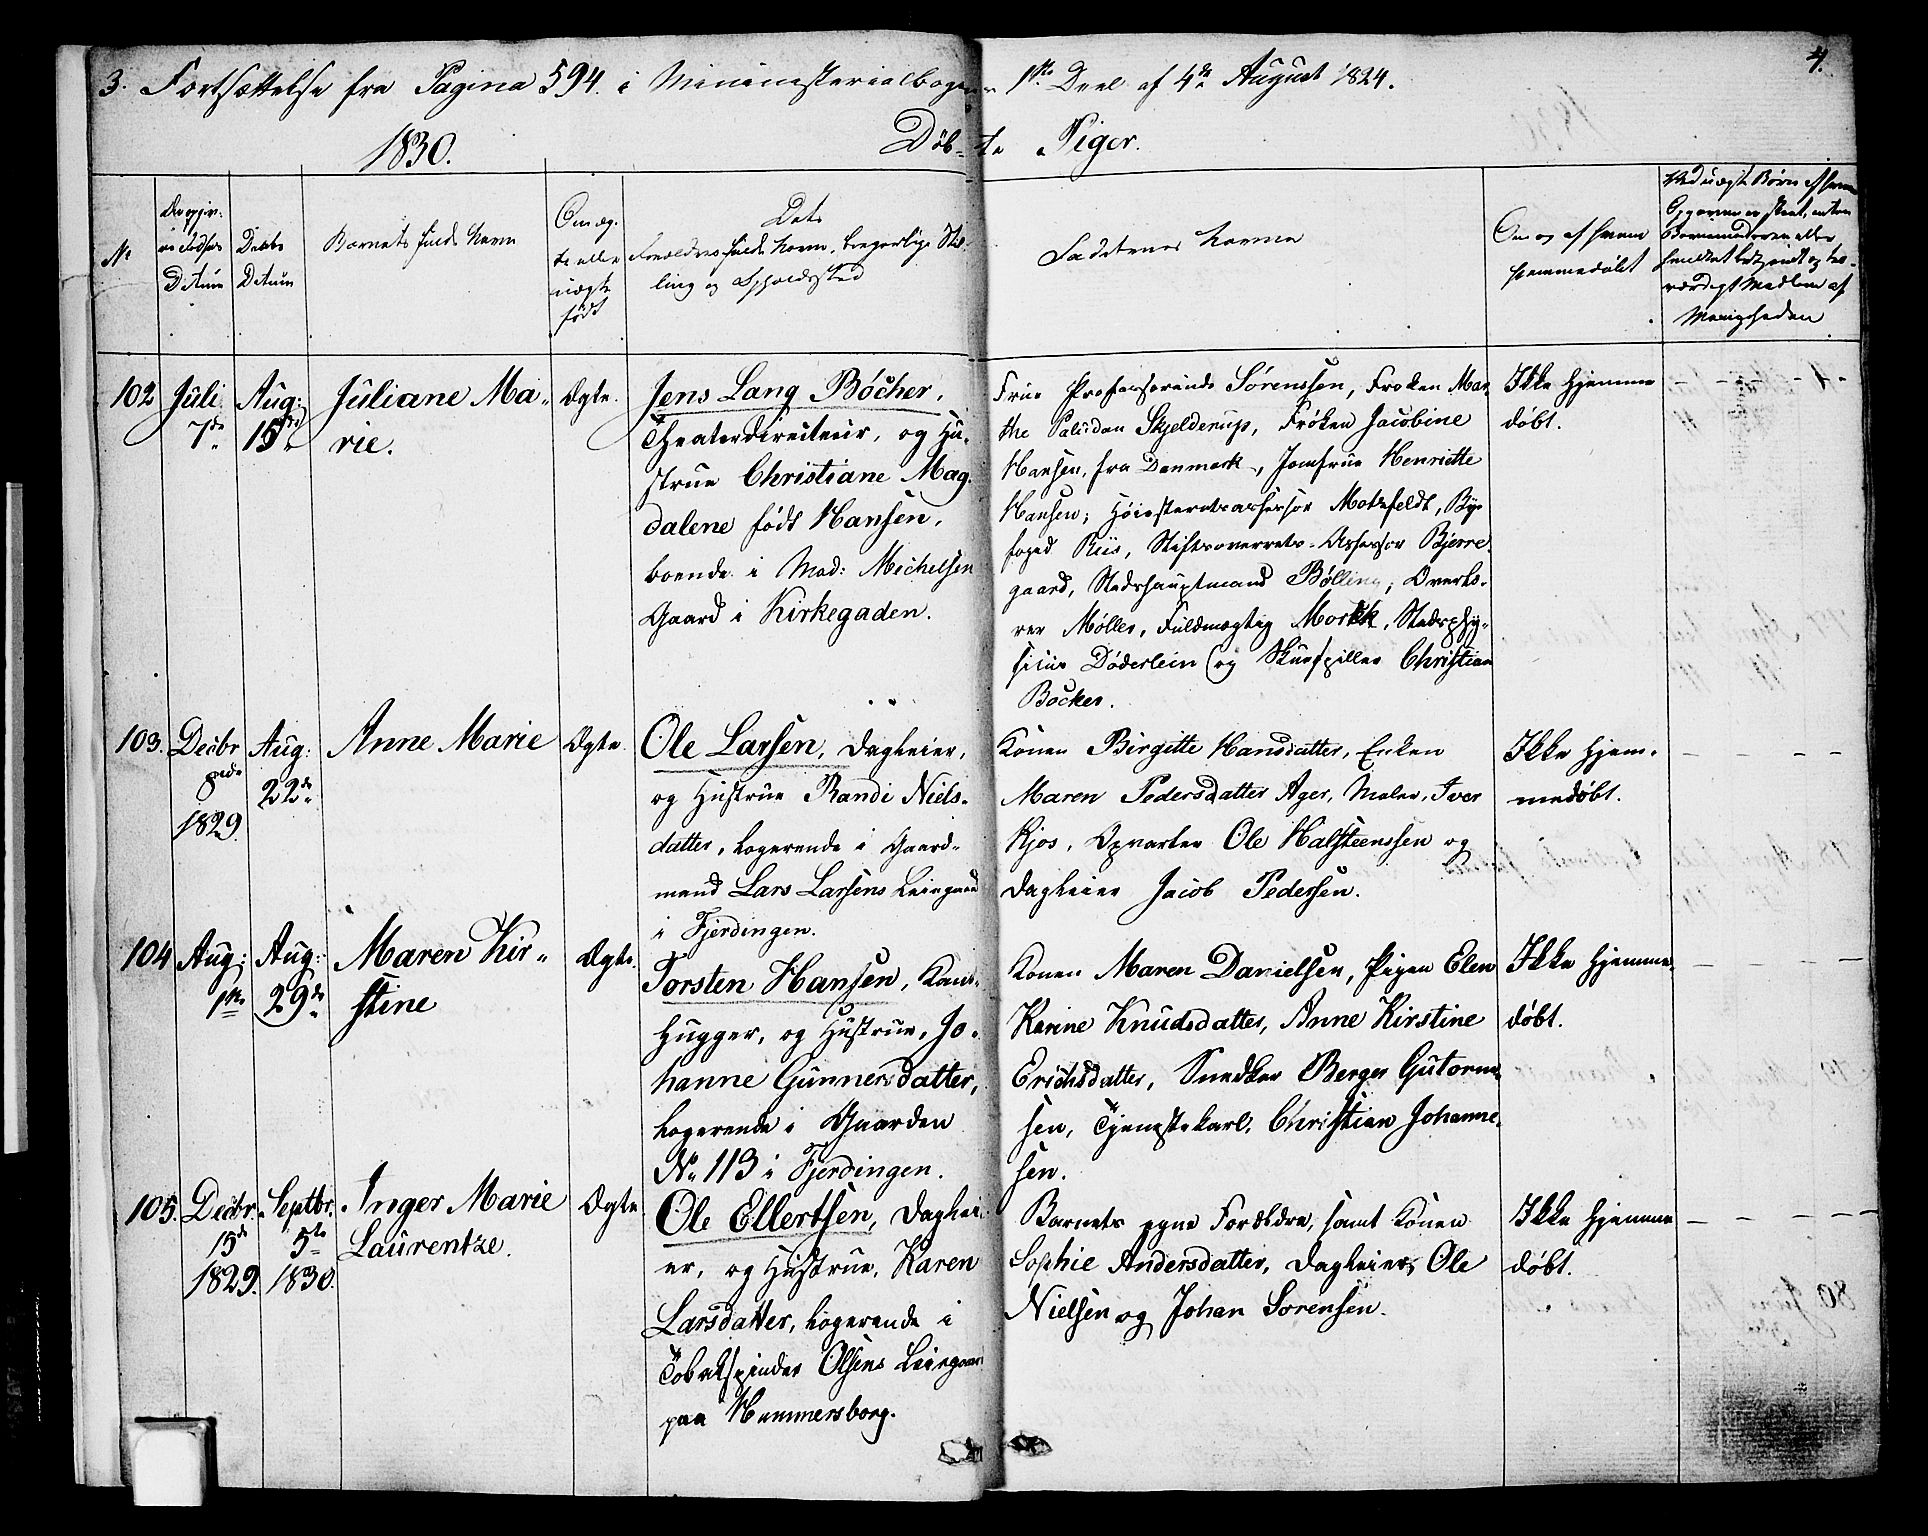 3. Fortsættelse fra Pagina 594. i Minimsterialbogens 1ste Deel af 4de August 1824.
4.
1830.
Døbte Piger.
No
Datum
Daabs
Datum
Barnets fulde Navn
Om æg-
te eller
uægte
født
Dets
Forældres fulde Navn, borgerlige Stil-
ling og Opholdssted
Faddernes Navne
Om og af hvem
hjemmedøbt
Ved uægte Børn af hvem
Opgaven er skeet, enten
værdigt Medlem af
Menigheden
102 Juli
7de
Aug:
15de
Juliane Ma-
rie.
Ægte.
Jens Lang Bøcher,
Theaterdirecteur, og Hu-
strue Christiane Mag-
dalene født Hansen,
boende i Mad: Michelsen
Gaard i Kirkegaden.
Frue Professorinde Sørenssen, Frøken Mar-
the Paludan Skjelderup, Frøken Jacobine
Hansen, fra Danmark, Jomfrue Henriette
Hansen; Høiesteretsassessor Motzfeldt, By-
foged Riis, Stiftsoverrets-Assessor Bjerre-
gaard, Stadshauptmand Bølling, Overlæ-
rer Møller, Fuldmægtig Morkk, Stadsphy-
sicus Døderlein og Skuespiller Christian
Bocker.
Ikke Hjemme
døbt.
103. Decbr
2den
1829.
Aug:
22de
Anne Marie
Ægte
Ole Larsen, Dagleier,
og Hustrue Randi Niels-
datter, logerende i Gaard-
mand Lars Larsens Leiegaard
i Fjerdingen.
Konen Birgitte Hansdatter, Enken
Maren Pedersdatter Ager, Maler, Iver
Kjos, Opvarter Ole Halsteenssen og
Dagleier Jacob Pedersen.
Ikke Hjem-
medøbt.
104 Aug:
1ste
Aug:
29de
Maren Kir-
stine
Ægte.
Torsten Hansen,
hugger, og Hustrue, Jo-
hanne Gunnersdatter,
logerende i Gaarden
No 113 i Fjerdingen.
Konen Maren Danielsen, Pigen Elen
Karine Knudsdatter, Anne Kirstine
Erichsdatter, Snedker Berger Gutorm-
sen, Tjenestekarl, Christian Johanne-
sen.
Ikke Hjemme-
døbt.
105. Decbr.
15de
1829.
Septbr.
5te
1830.
Inger Marie
Laurentze.
Ægte
Ole Ellertsen, Daglei-
er, og Hustrue, Karen
Larsdatter, logerende i
Tobakspinder Olsens Leiegaard
paa Hammersborg.
Barnets egne Forældre, samt Konen
Sophie Andersdatter, Dagleier, Ole
Nielsen og Johan Sorensen.
Ikke Hjemme
døbt.